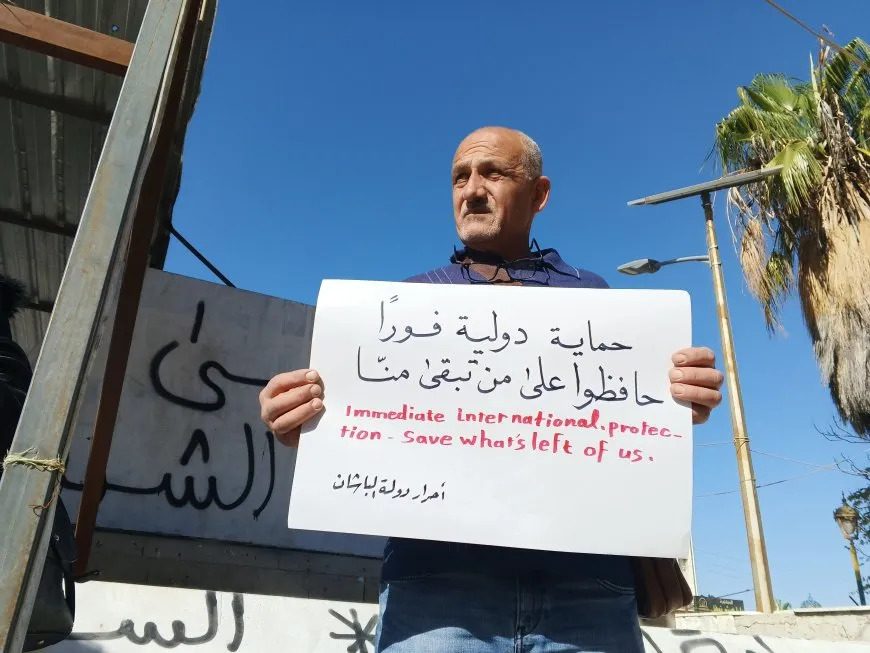 حماية دولية فورًا
حافظوا على من تبقى منّا
Immediate international. protec-
tion - save what's left of us.
أحرار دولة الباشان